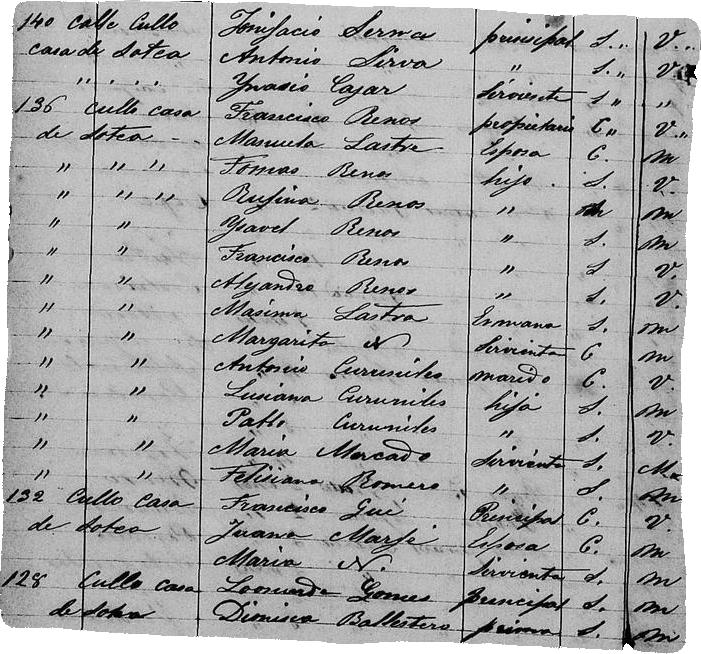 140 Calle Cullo Bonifacio Serna principal S. " V. "
casa de Sotea Antonio Sirva " S. " V.
" " " Ynasio Cajar Sirviente S " "
136 Cullo casa Francisco Renos propietario C " V. "
de Sotea - Manuela Lastra Esposa C. m
" " " Tomas Renos hijo . S. V.
" " " Rufina Renos " m
" " Ysavel Renos " S. m
" " Francisco Renos " S V.
" " Alejandro Renos " S. V.
" " Masima Lastra Ermana S. m
" " Margarita N Sirvienta C m
" " Antonio Curuniles maredo C. V.
" " Lusiana Curuniles hija S. m
" " Pablo Curuniles " S. V.
" " Maria Mercado Sirvienta S. M
" " Felisiana Romero " S. m
132 Cullo Casa Francisco Gui Prinsipal C. V.
de Sotea Juana Marfé Esposa C. m
Maria N. Sirvienta S. m
128 Cullo casa Leonarda Gomes prencipal S. m
de Sotea Dionisia Ballestero prima S. m